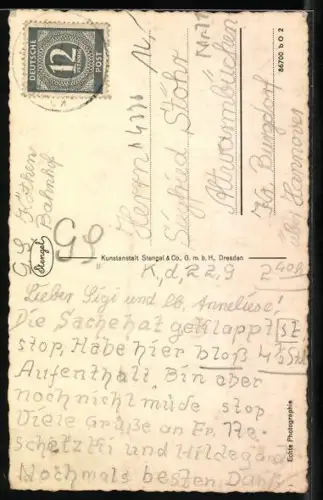 DEUTSCHE
POST
12
Herrn
Siegfried Stöhr
Altwarmbüchen
Kr. Burgdorf
über Hannover
86700 b O 2
Köthen
Bahnhof
Stengel
GS
Kunstanstalt Stengel & Co., G. m. b. H., Dresden
K, d, 22, 9
Lieber Sigi und lb. Anneliese!
Die Sache hat geklappt
stop, Habe hier bloß 4½ Std
Aufenthalt, Bin aber
noch nicht müde stop
Viele Grüße an Fr.
und Hildegard
Nochmals besten Dank.
Echte Photographie